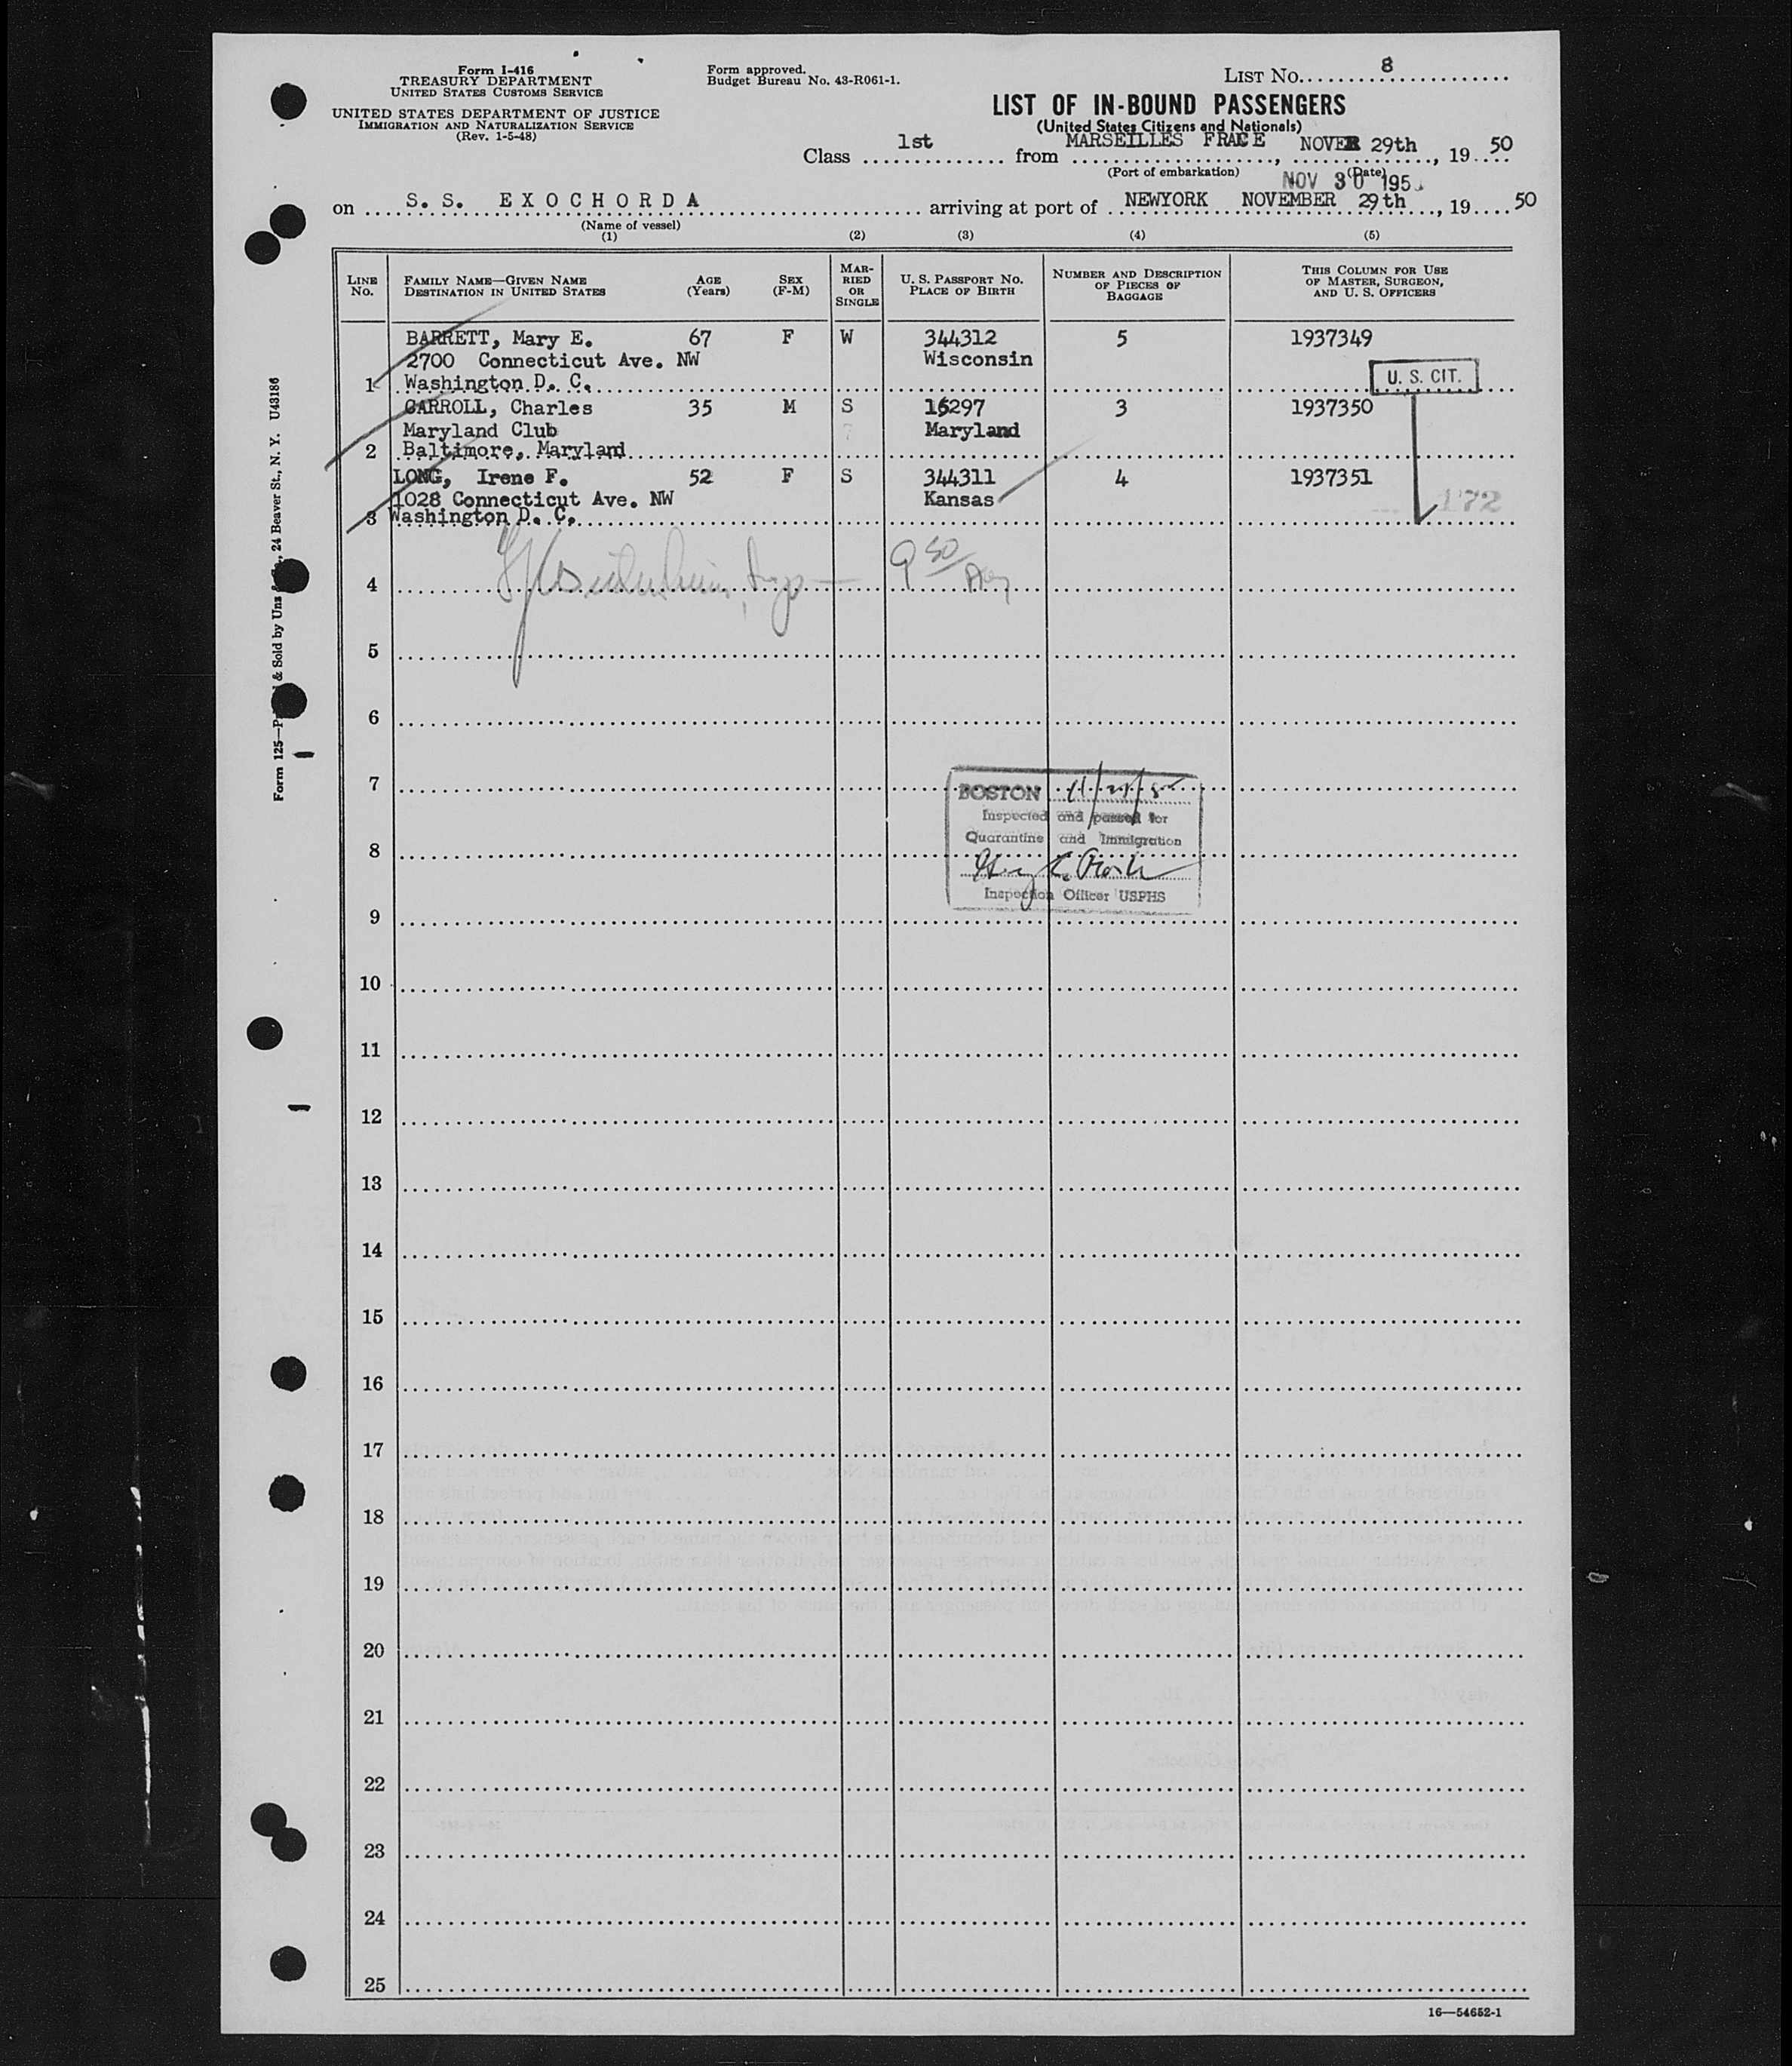 Form I-416
TREASURY DEPARTMENT
UNITED STATES CUSTOMS SERVICE
UNITED STATES DEPARTMENT OF JUSTICE
IMMIGRATION AND NATURALIZATION SERVICE
(Rev. 1-5-48)
Form approved.
Budget Bureau No. 43-R061-1.
LIST No. 8
LIST OF IN-BOUND PASSENGERS
(United States Citizens and Nationals)
Class 1st from MARSEILLES FRACE, NOVER 29th, 19 50
(Port of embarkation) (Date)
NOV 30 195
on S. S. EXOCHORDA arriving at port of NEWYORK NOVEMBER 29th, 19 50
(Name of vessel)
(1) (2) (3) (4) (5)
LINE No. FAMILY NAME—GIVEN NAME DESTINATION IN UNITED STATES AGE (Years) SEX (F-M) MARRIED OR SINGLE U. S. PASSPORT NO. PLACE OF BIRTH NUMBER AND DESCRIPTION OF PIECES OF BAGGAGE THIS COLUMN FOR USE OF MASTER, SURGEON, AND U. S. OFFICERS
BARRETT, Mary E. 67 F W 344312 5 1937349
2700 Connecticut Ave. NW Wisconsin
1 Washington D. C. U. S. CIT.
CARROLL, Charles 35 M S 16297 3 1937350
Maryland Club Maryland
2 Baltimore, Maryland
LONG, Irene F. 52 F S 344311 4 1937351
1028 Connecticut Ave. NW Kansas 172
3 Washington D. C.
4 9 50
5
6
7
BOSTON
Inspected and passed for
Quarantine and Immigration
8
Inspection Officer USPHS
9
10
11
12
13
14
15
16
17
18
19
20
21
22
23
24
25
16—54652-1
Form 125—P & Sold by Unz & Co., 24 Beaver St., N. Y. U43186